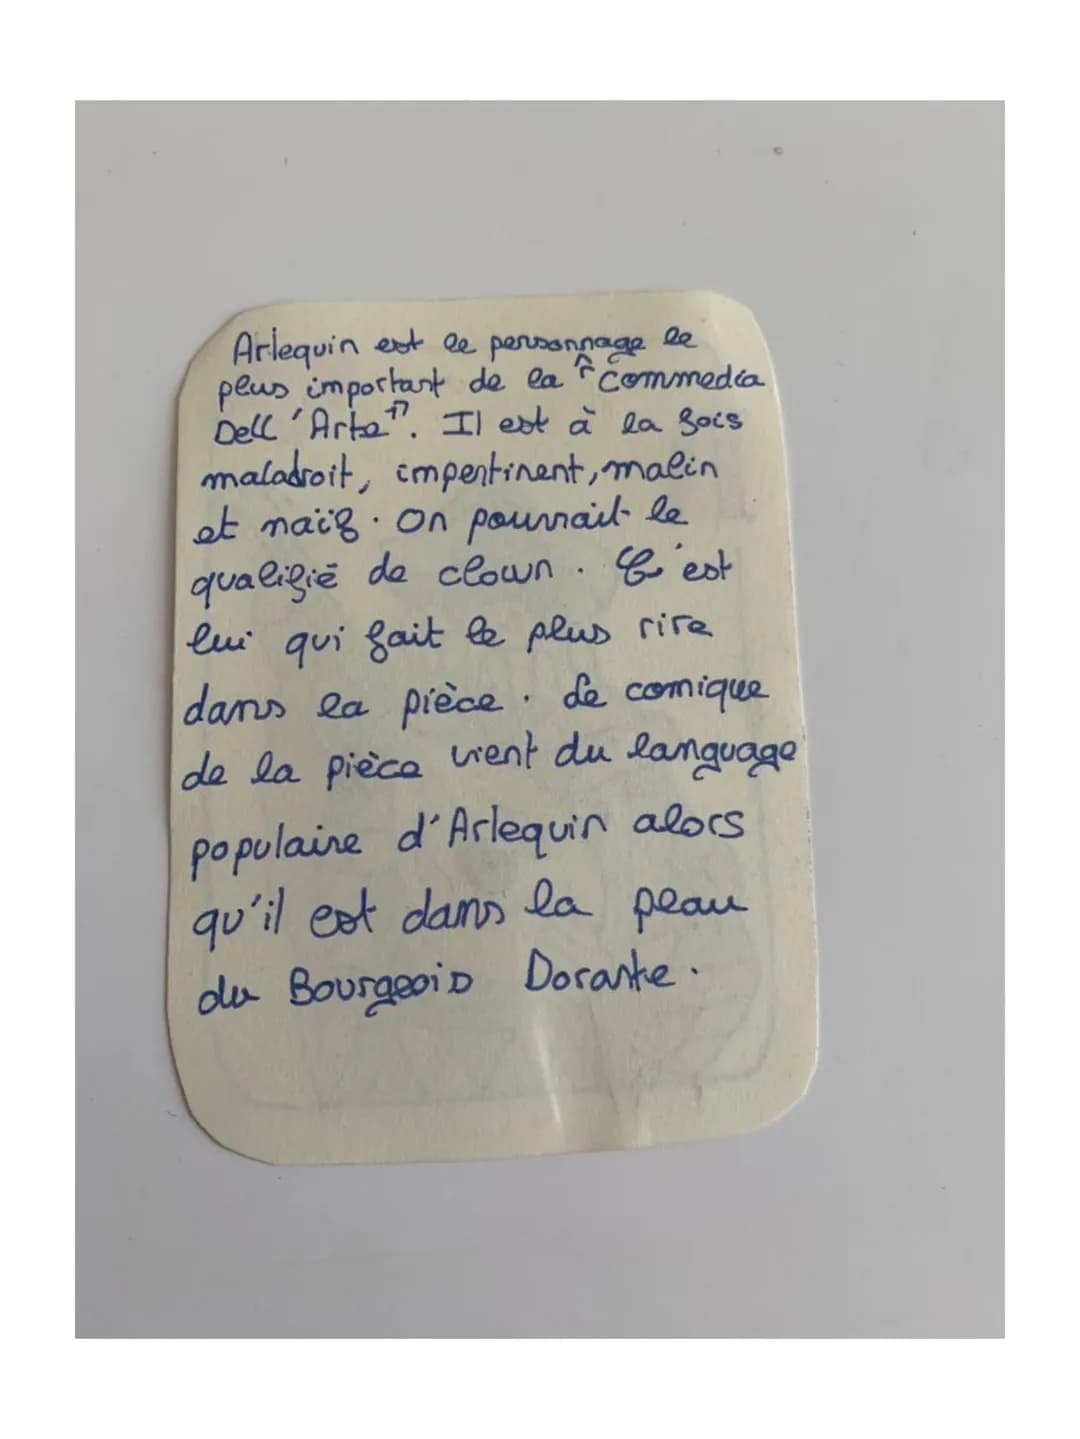 Arlequin est le personnage le
plus important de la "Commedia
Dell'Arte". Il est à la fois
maladroit, impertinent, malin
et naïf. On pourrait le
qualifié de clown. C'est
lui qui fait le plus rire
dans la pièce. Le comique
de la pièce vient du language
populaire d'Arlequin alors
qu'il est dans la peau
du Bourgeois Dorante.